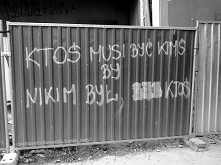 KTOŚ MUSI BYĆ KIMŚ
BY
NIKIM BYŁ, KTOŚ